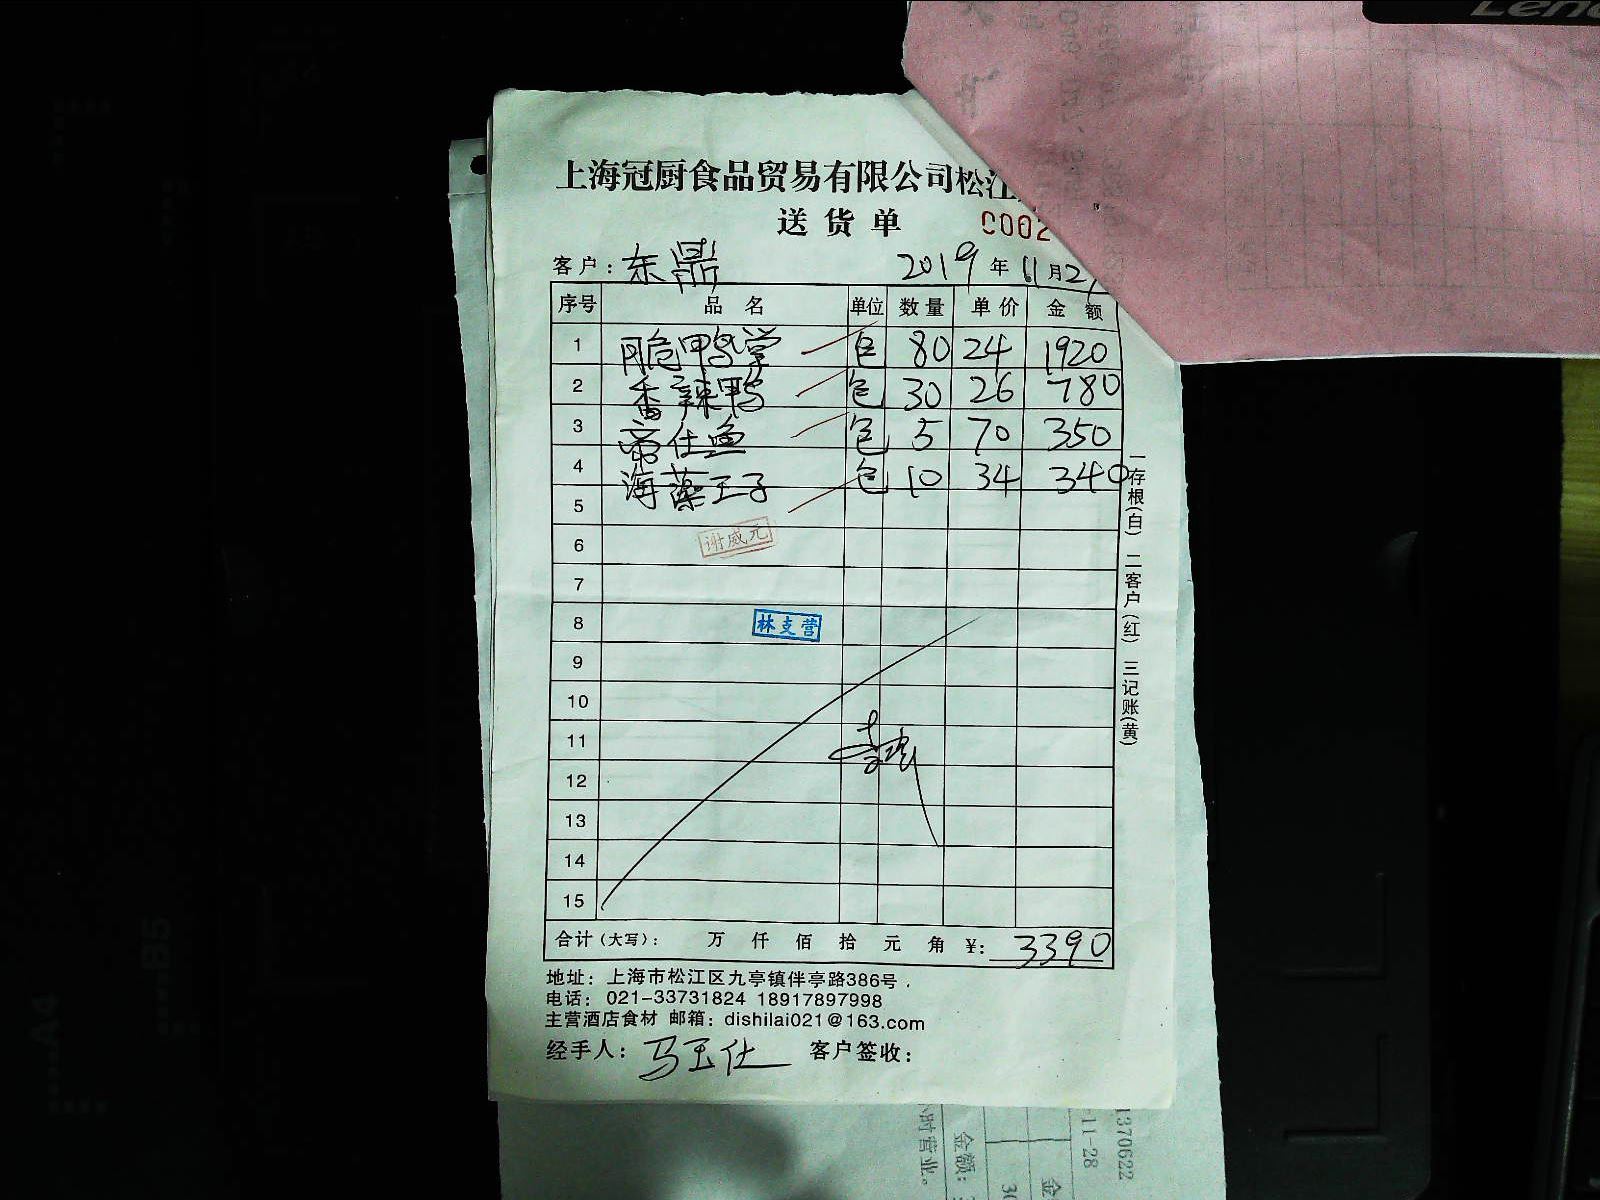 上海冠厨食品贸易有限公司松江
送货单
C002
客户：东鼎 2019年11月2
序号 品名 单位 数量 单价 金额
1 脆鸭掌 包 80 24 1920
2 香辣鸭 包 30 26 780
3 帝仕鱼 包 5 70 350
4 海藻王子 包 10 34 340
5
6 谢威元
7
8 林支营
9
10
11
12
13
14
15
合计（大写）： 万 仟 佰 拾 元 角 ¥： 3390
地址：上海市松江区九亭镇伴亭路386号
电话：021-33731824 18917897998
主营酒店食材 邮箱：dishilai021@163.com
经手人：马玉仕 客户签收：
一存根(白) 二客户(红) 三记账(黄)
Leno
A4
B5
时营业。
金额：
11-28
1370622